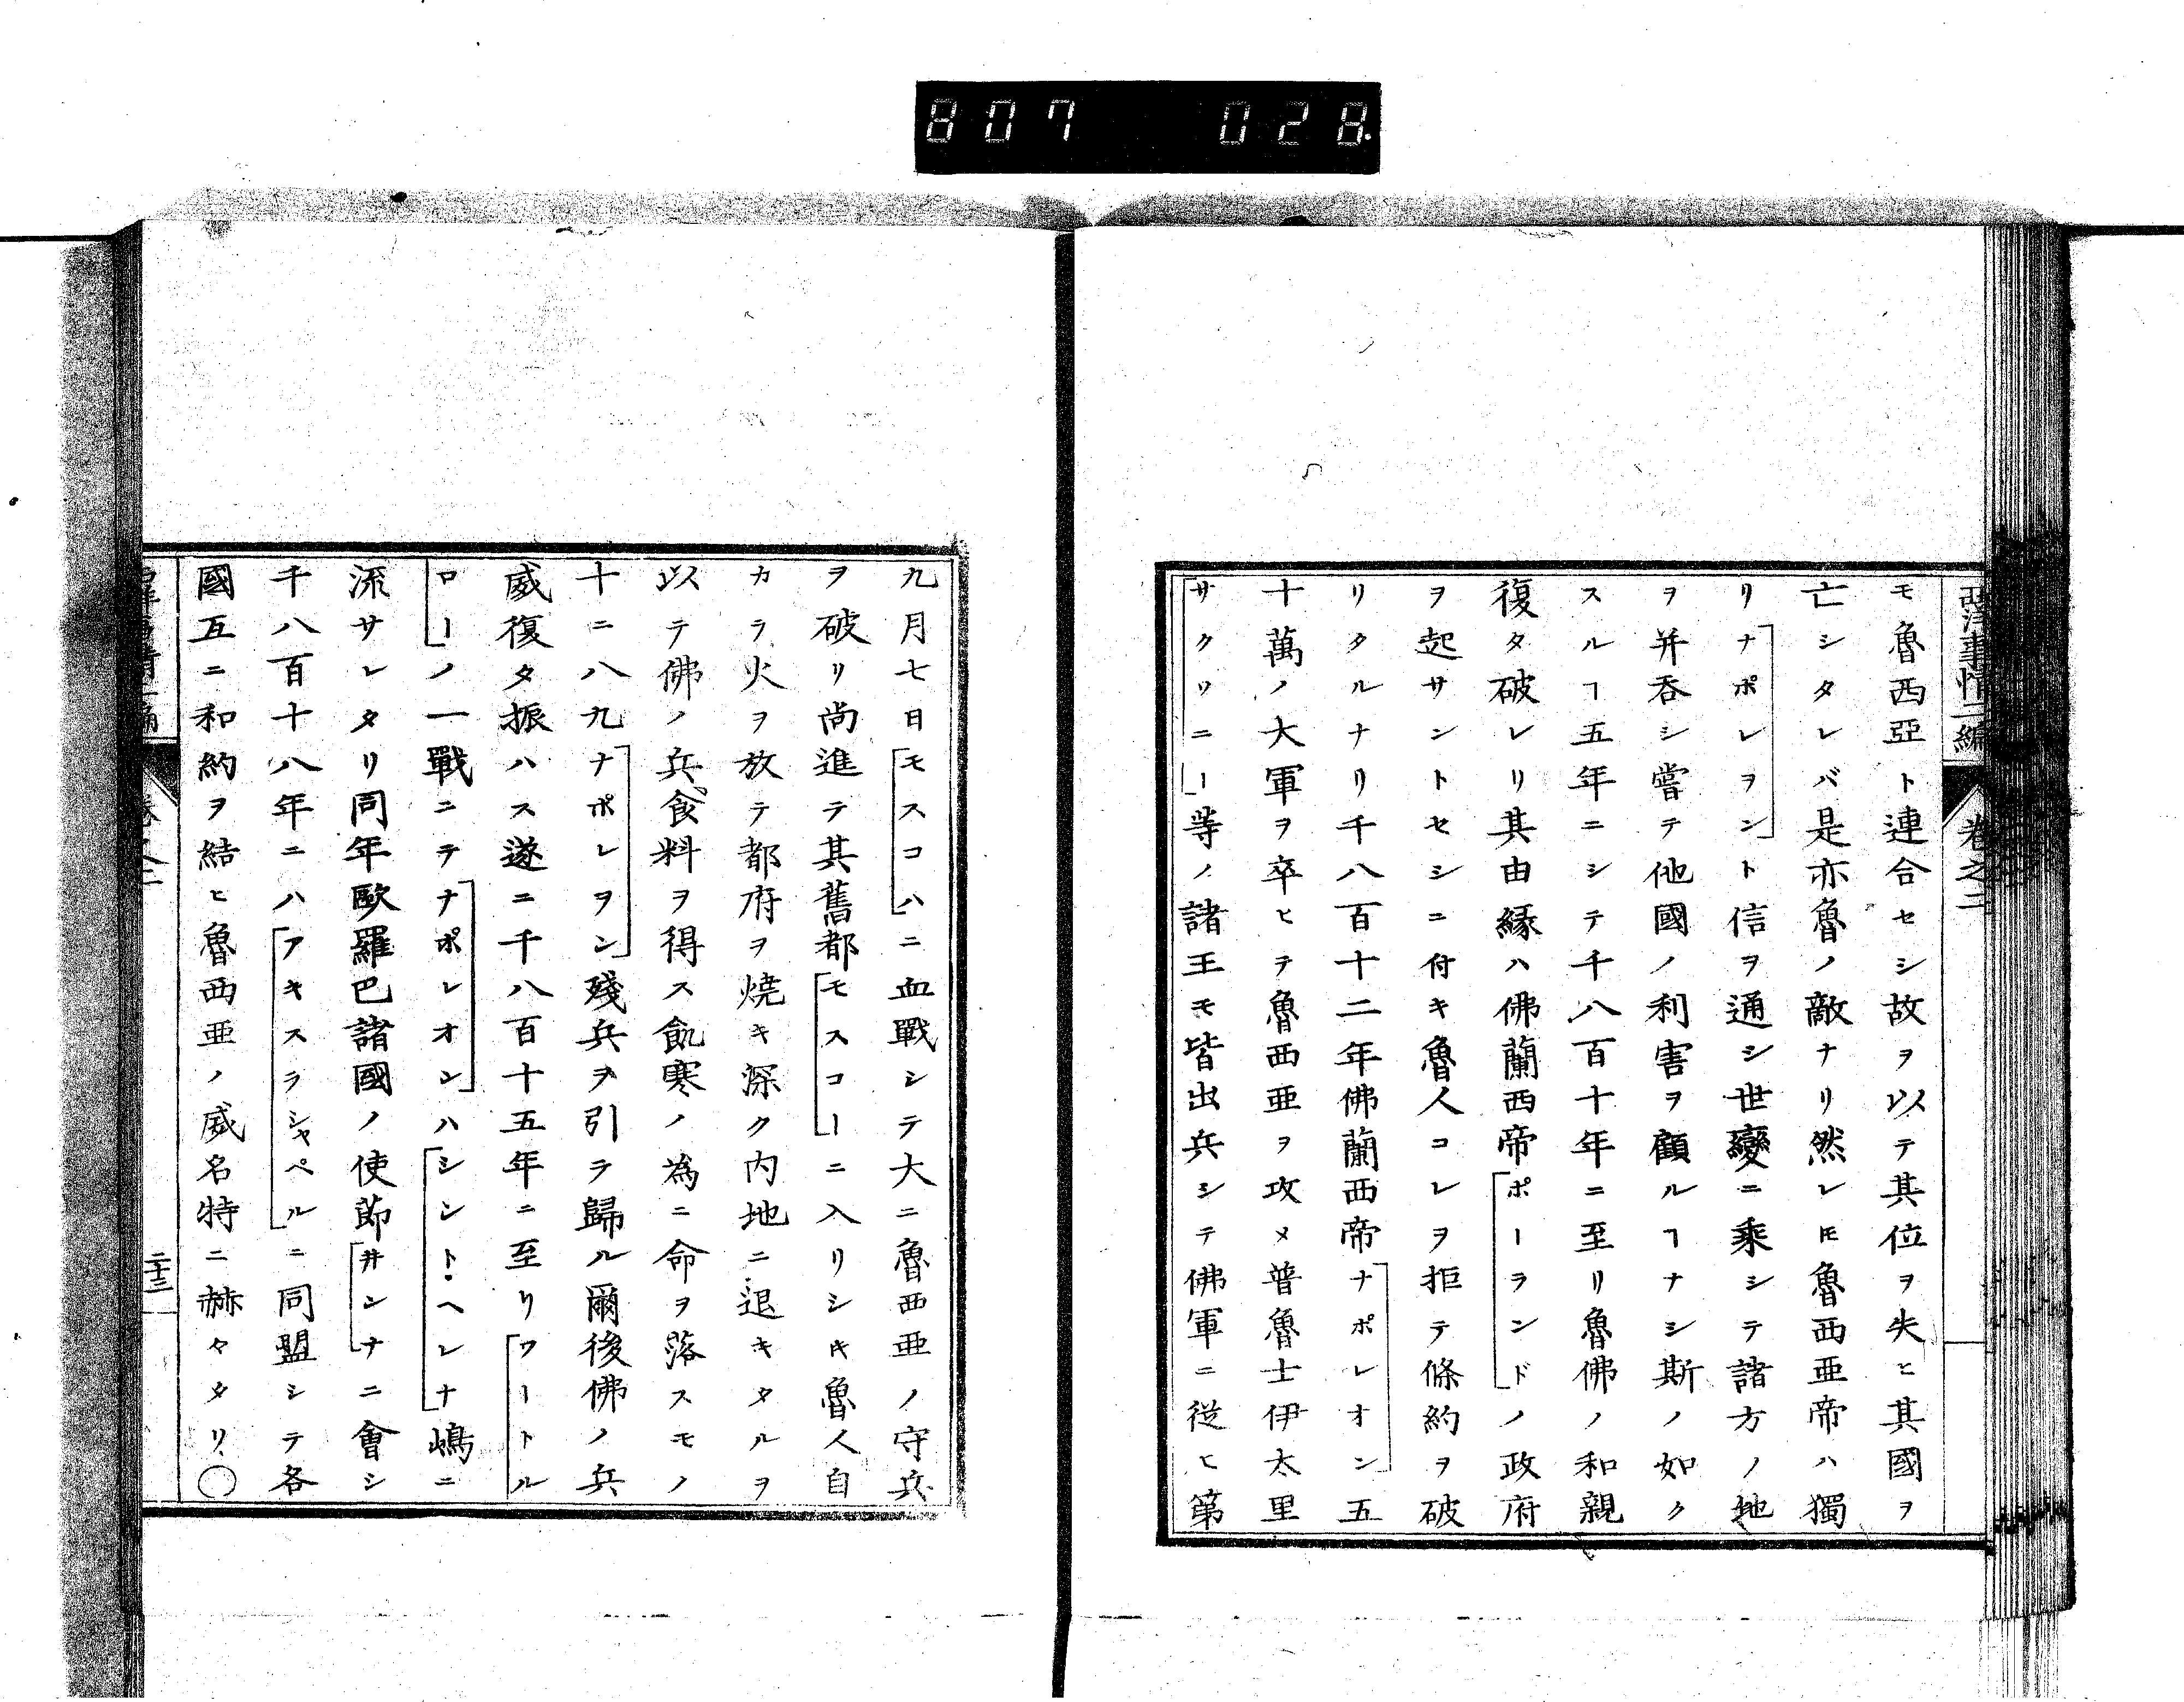 807 028
西洋事情二編 卷之二
モ魯西亞ト連合セシ故ヲ以テ其位ヲ失ヒ其國ヲ
亡シタレバ是亦魯ノ敵ナリ然レ𪜈魯西亜帝ハ獨
リナポレヲント信ヲ通シ世變ニ乗シテ諸方ノ地
ヲ并呑シ嘗テ他國ノ利害ヲ顧ルヿナシ斯ノ如ク
スルヿ五年ニシテ千八百十年ニ至リ魯佛ノ和親
復タ破レリ其由縁ハ佛蘭西帝ポーランドノ政府
ヲ起サントセシニ付キ魯人コレヲ拒テ條約ヲ破
リタルナリ千八百十二年佛蘭西帝ナポレオン五
十萬ノ大軍ヲ卒ヒテ魯西亜ヲ攻メ普魯士伊太里
サクソニー等ノ諸王モ皆出兵シテ佛軍ニ従ヒ第
九月七日モスコハニ血戰シテ大ニ魯西亜ノ守兵
ヲ破リ尚進テ其舊都モスコーニ入リシキ魯人自
カラ火ヲ放テ都府ヲ焼キ深ク内地ニ退キタルヲ
以テ佛ノ兵食料ヲ得ス飢寒ノ為ニ命ヲ落スモノ
十ニ八九ナポレヲン殘兵ヲ引ラ歸ル爾後佛ノ兵
威復タ振ハス遂ニ千八百十五年ニ至リワートル
ローノ一戰ニテナポレオンハシントヘレナ嶋ニ
流サレタリ同年歐羅巴諸國ノ使節井ンナニ會シ
千八百十八年ニハアキスラシャペルニ同盟シテ各
國互ニ和約ヲ結ヒ魯西亜ノ威名特ニ赫々タリ○
二十三